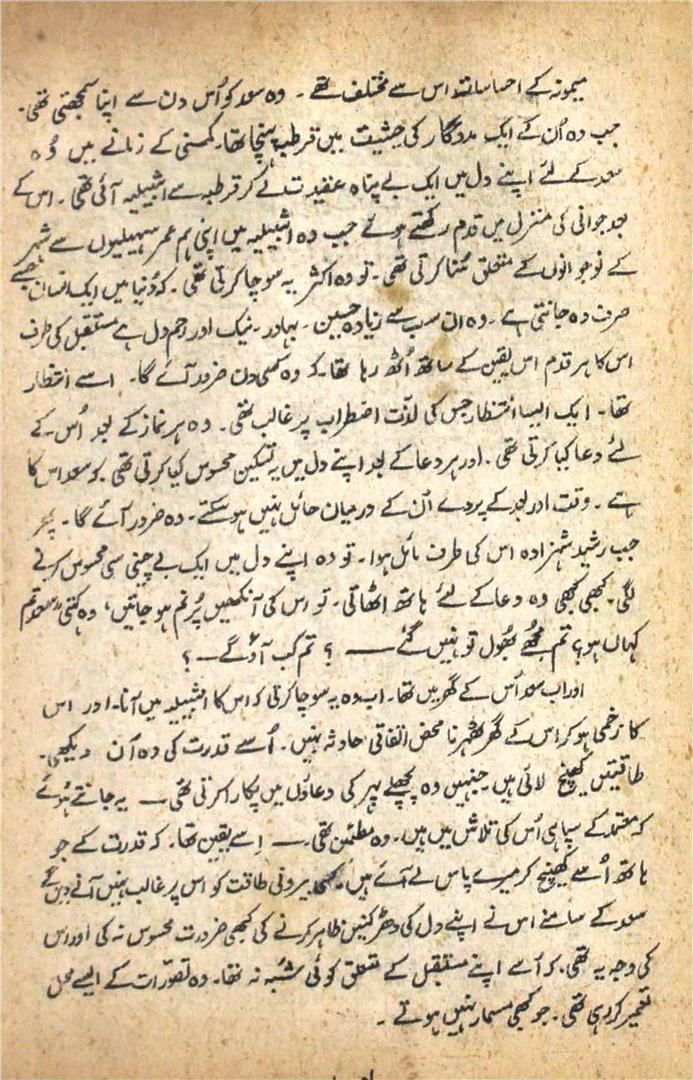 میمونہ کے احساسات اس سے مختلف تھے ۔ وہ سعد کو اُس دن سے اپنا سمجھتی تھی۔
جب وہ اُن کے ایک مددگار کی حیثیت میں قرطبہ پہنچا تھا۔ کمسنی کے زمانے میں وُہ
سعد کے لئے اپنے دل میں ایک بے پناہ عقیدت لے کر قرطبہ سے اشبیلیہ آئی تھی ۔ اس کے
بعد جوانی کی منزل میں قدم رکھتے ہوئے جب وہ اشبیلیہ میں اپنی ہم عمر سہیلیوں سے شہر
کے نوجوانوں کے متعلق سُنا کرتی تھی ۔ تو وہ اکثر یہ سوچا کرتی تھی ۔ کہ دُنیا میں ایک انسان جسے
صرف وہ جانتی ہے ۔ وہ ان سب سے زیادہ حسین ۔ بہادر ۔ نیک اور رحم دل ہے مستقبل کی طرف
اس کا ہر قدم اس یقین کے ساتھ اُٹھ رہا تھا ۔ کہ وہ کسی دن ضرور آئے گا ۔ اسے انتظار
تھا ۔ ایک ایسا انتظار جس کی لذّت اضطراب پر غالب تھی ۔ وہ ہر نماز کے بعد اُس کے
لئے دعا کیا کرتی تھی ۔ اور ہر دعا کے بعد اپنے دل میں یہ تسکین محسوس کیا کرتی تھی ۔ کہ سعد اس کا
ہے ۔ وقت اور بعد کے پردے اُن کے درمیان حائل نہیں ہو سکتے ۔ وہ ضرور آئے گا ۔ پھر
جب رشید شہزادہ اس کی طرف مائل ہوا ۔ تو وہ اپنے دل میں ایک بے چینی سی محسوس کرنے
لگی ۔ کبھی کبھی وہ دعا کے لئے ہاتھ اٹھاتی ۔ تو اس کی آنکھیں پُرنم ہو جاتیں، وہ کہتی "سعد تم
کہاں ہو؟ تم مجھے بھول تو نہیں گئے — ؟ تم کب آؤ گے — ؟
اور اب سعد اُس کے گھر میں تھا ۔ اب وہ یہ سوچا کرتی کہ اس کا اشبیلیہ میں آنا ۔ اور اس
کا زخمی ہو کر اس کے گھر ٹھہرنا محض اتفاقی حادثہ نہیں ۔ اُسے قدرت کی وہ اَن دیکھی
طاقتیں کھینچ لائی ہیں ۔ جنہیں وہ پچھلے پہر کی دعاؤں میں پکارا کرتی تھی — یہ جانتے ہوئے
کہ معتمد کے سپاہی اُس کی تلاش میں ہیں ۔ وہ مطمئن تھی ۔ — اِسے یقین تھا ۔ کہ قدرت کے جو
ہاتھ اُسے کھینچ کر میرے پاس لے آئے ہیں ۔ کسی بیرونی طاقت کو اس پر غالب نہیں آنے دیں گے
سعد کے سامنے اس نے اپنے دل کی دھڑکنیں ظاہر کرنے کی کبھی ضرورت محسوس نہ کی اور اس
کی وجہ یہ تھی ۔ کہ اُسے اپنے مستقبل کے متعلق کوئی شُبہ نہ تھا ۔ وہ تصوّرات کے ایسے محل
تعمیر کر رہی تھی ۔ جو کبھی مسمار نہیں ہوتے ۔